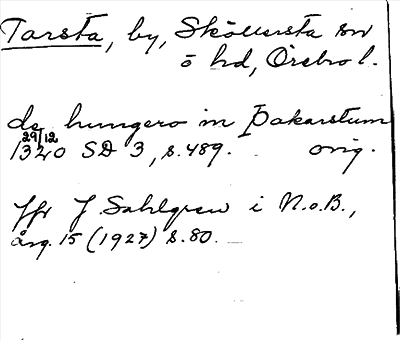 Torsta, by, Sköllersta sn
ö hd, Örebro l.
de hungero in Þokarstum
29/12
1340 SD 3, s. 489. orig.
Jfr J. Sahlgren i N.o.B.,
årg. 15 (1927) s. 80.